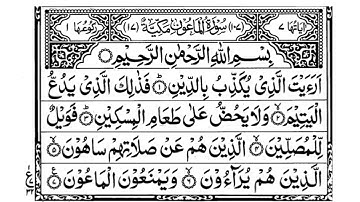 اٰیاتها ٧ (١٠٧) سُوْرَةُ الْمَاعُوْنِ مَكِّيَّةٌ (١٧) رکوعها ١
بِسْمِ اللّٰهِ الرَّحْمٰنِ الرَّحِيْمِ
اَرَءَيْتَ الَّذِىْ يُكَذِّبُ بِالدِّيْنِ ① فَذٰلِكَ الَّذِىْ يَدُعُّ
الْيَتِيْمَ ② وَلَا يَحُضُّ عَلٰى طَعَامِ الْمِسْكِيْنِ ③ فَوَيْلٌ
لِّلْمُصَلِّيْنَ ④ الَّذِيْنَ هُمْ عَنْ صَلَاتِهِمْ سَاهُوْنَ ⑤
الَّذِيْنَ هُمْ يُرَآءُوْنَ ⑥ وَيَمْنَعُوْنَ الْمَاعُوْنَ ⑦